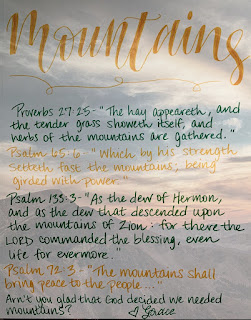 Mountains
Proverbs 27:25 - "The hay appeareth, and
the tender grass showeth itself, and
herbs of the mountains are gathered."
Psalm 65:6 - "Which by his strength
Setteth fast the mountains; being
girded with power."
Psalm 133:3 - "As the dew of Hermon,
and as the dew that descended upon
the mountains of Zion: for there the
LORD commanded the blessing, even
life for evermore."
Psalm 72:3 - "The mountains shall
bring peace to the people..."
Arn't you glad that God decided we needed
mountains? ♡ Grace